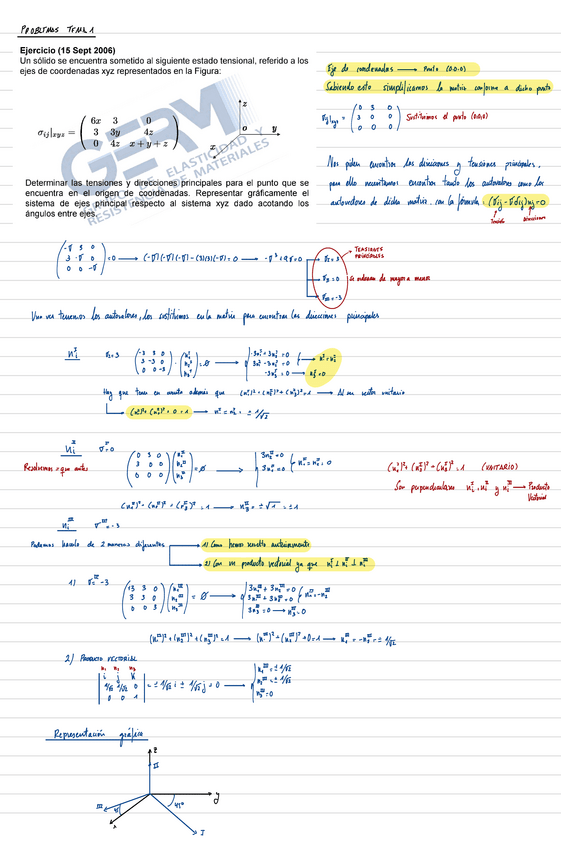 PROBLEMAS TEMA 1
Ejercicio (15 Sept 2006)
Un sólido se encuentra sometido al siguiente estado tensional, referido a los
ejes de coordenadas xyz representados en la Figura:
σij|xyz = ( 6x 3 0
3 3y 4z
0 4z x + y + z )
z
o y
x
GERM
ELASTICIDAD Y
RESISTENCIA DE MATERIALES
Determinar las tensiones y direcciones principales para el punto que se
encuentra en el origen de coordenadas. Representar gráficamente el
sistema de ejes principal respecto al sistema xyz dado acotando los
ángulos entre ejes.
Eje de coordenadas → Punto (0,0,0)
Sabiendo esto simplificamos la matriz conforme a dicho punto
σij|xyz = ( 0 3 0
3 0 0
0 0 0 ) Sustituimos el punto (0,0,0)
Nos piden encontrar las direcciones y tensiones principales,
para ello necesitamos encontrar tanto los autovalores como los
autovectores de dicha matriz. con la fórmula: (σij - σδij)nj = 0
Tensión Direcciones
( -σ 3 0
3 -σ 0
0 0 -σ ) = 0 → (-σ)(-σ)(-σ) - (3)(3)(-σ) = 0 → -σ³ + 9σ = 0
σI = 3
σII = 0
σIII = -3
TENSIONES PRINCIPALES
Se ordenan de mayor a menor
Una vez tenemos los autovalores, los sustituimos en la matriz para encontrar las direcciones principales
niI σI = 3 ( -3 3 0
3 -3 0
0 0 -3 ) · ( n1I
n2I
n3I ) = 0 → -3n1I + 3n2I = 0
3n1I - 3n2I = 0 → n1I = n2I
-3n3I = 0 → n3I = 0
Hay que tener en cuenta además que (n1I)² + (n2I)² + (n3I)² = 1 → Al ser vector unitario
(n1I)² + (n2I)² + 0 = 1 → n1I = n2I = ± 1/√2
niII σII = 0
Resolvemos igual que antes
( 0 3 0
3 0 0
0 0 0 ) ( n1II
n2II
n3II ) = 0 → 3n2II = 0
3n1II = 0 n1II = n2II = 0
(n1II)² + (n2II)² + (n3II)² = 1 (UNITARIO)
Son perpendiculares niI, niII y niIII → Producto Vectorial
(n1II)² + (n2II)² + (n3II)² = 1 → n3II = ± √1 = ± 1
niIII σIII = -3
Podemos hacerlo de 2 maneras diferentes
1) Como hemos resuelto anteriormente
2) Con un producto vectorial ya que niI ⊥ niII ⊥ niIII
1) σIII = -3 ( +3 3 0
3 3 0
0 0 3 ) ( n1III
n2III
n3III ) = 0 → 3n1III + 3n2III = 0
3n1III + 3n2III = 0 n1III = -n2III
3n3III = 0 → n3III = 0
(n1III)² + (n2III)² + (n3III)² = 1 → (n1III)² + (n2III)² + 0 = 1 → n1III = -n2III = ± 1/√2
2) PRODUCTO VECTORIAL
n1 n2 n3
| i j k
1/√2 1/√2 0
0 0 1 | = ± 1/√2 i ± 1/√2 j + 0 → n1III = ± 1/√2
n2III = ± 1/√2
n3III = 0
Representación gráfica
z
II
y
III
45°
45°
x
I